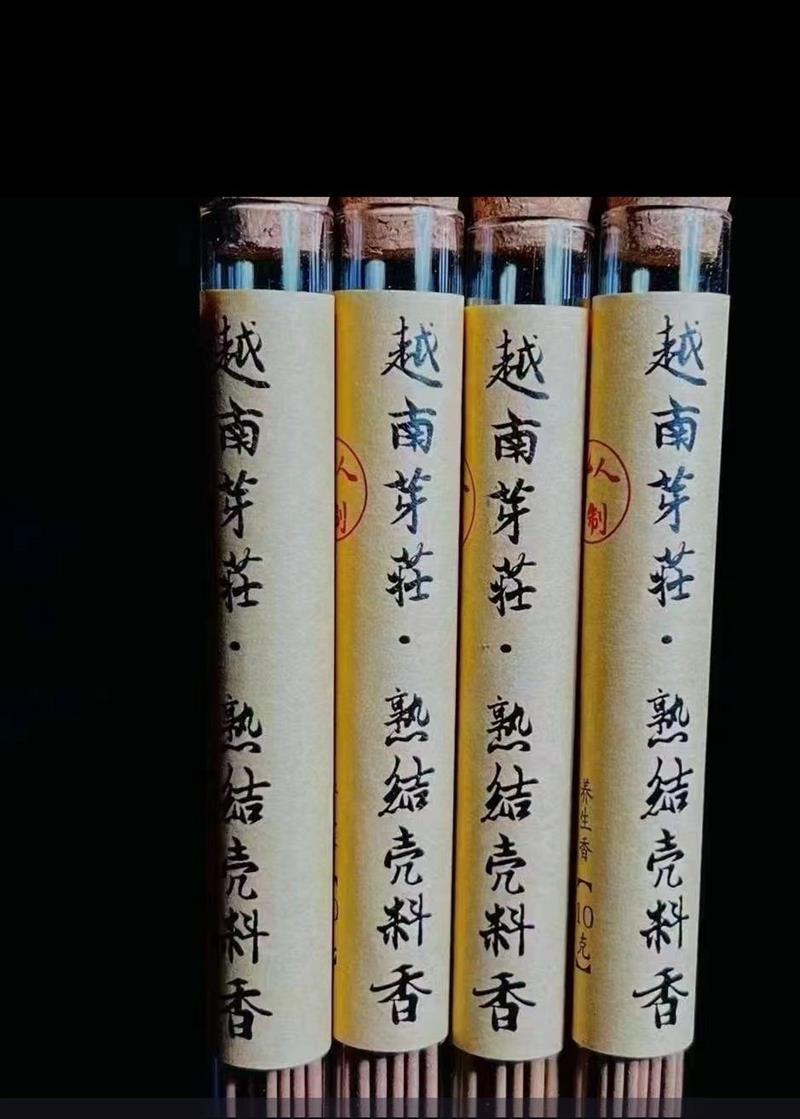 越南芽莊·熟結壳料香
越南芽莊·熟結壳料香
越南芽莊·熟結壳料香
越南芽莊·熟結壳料香
人
制
人
制
养生香【10克】